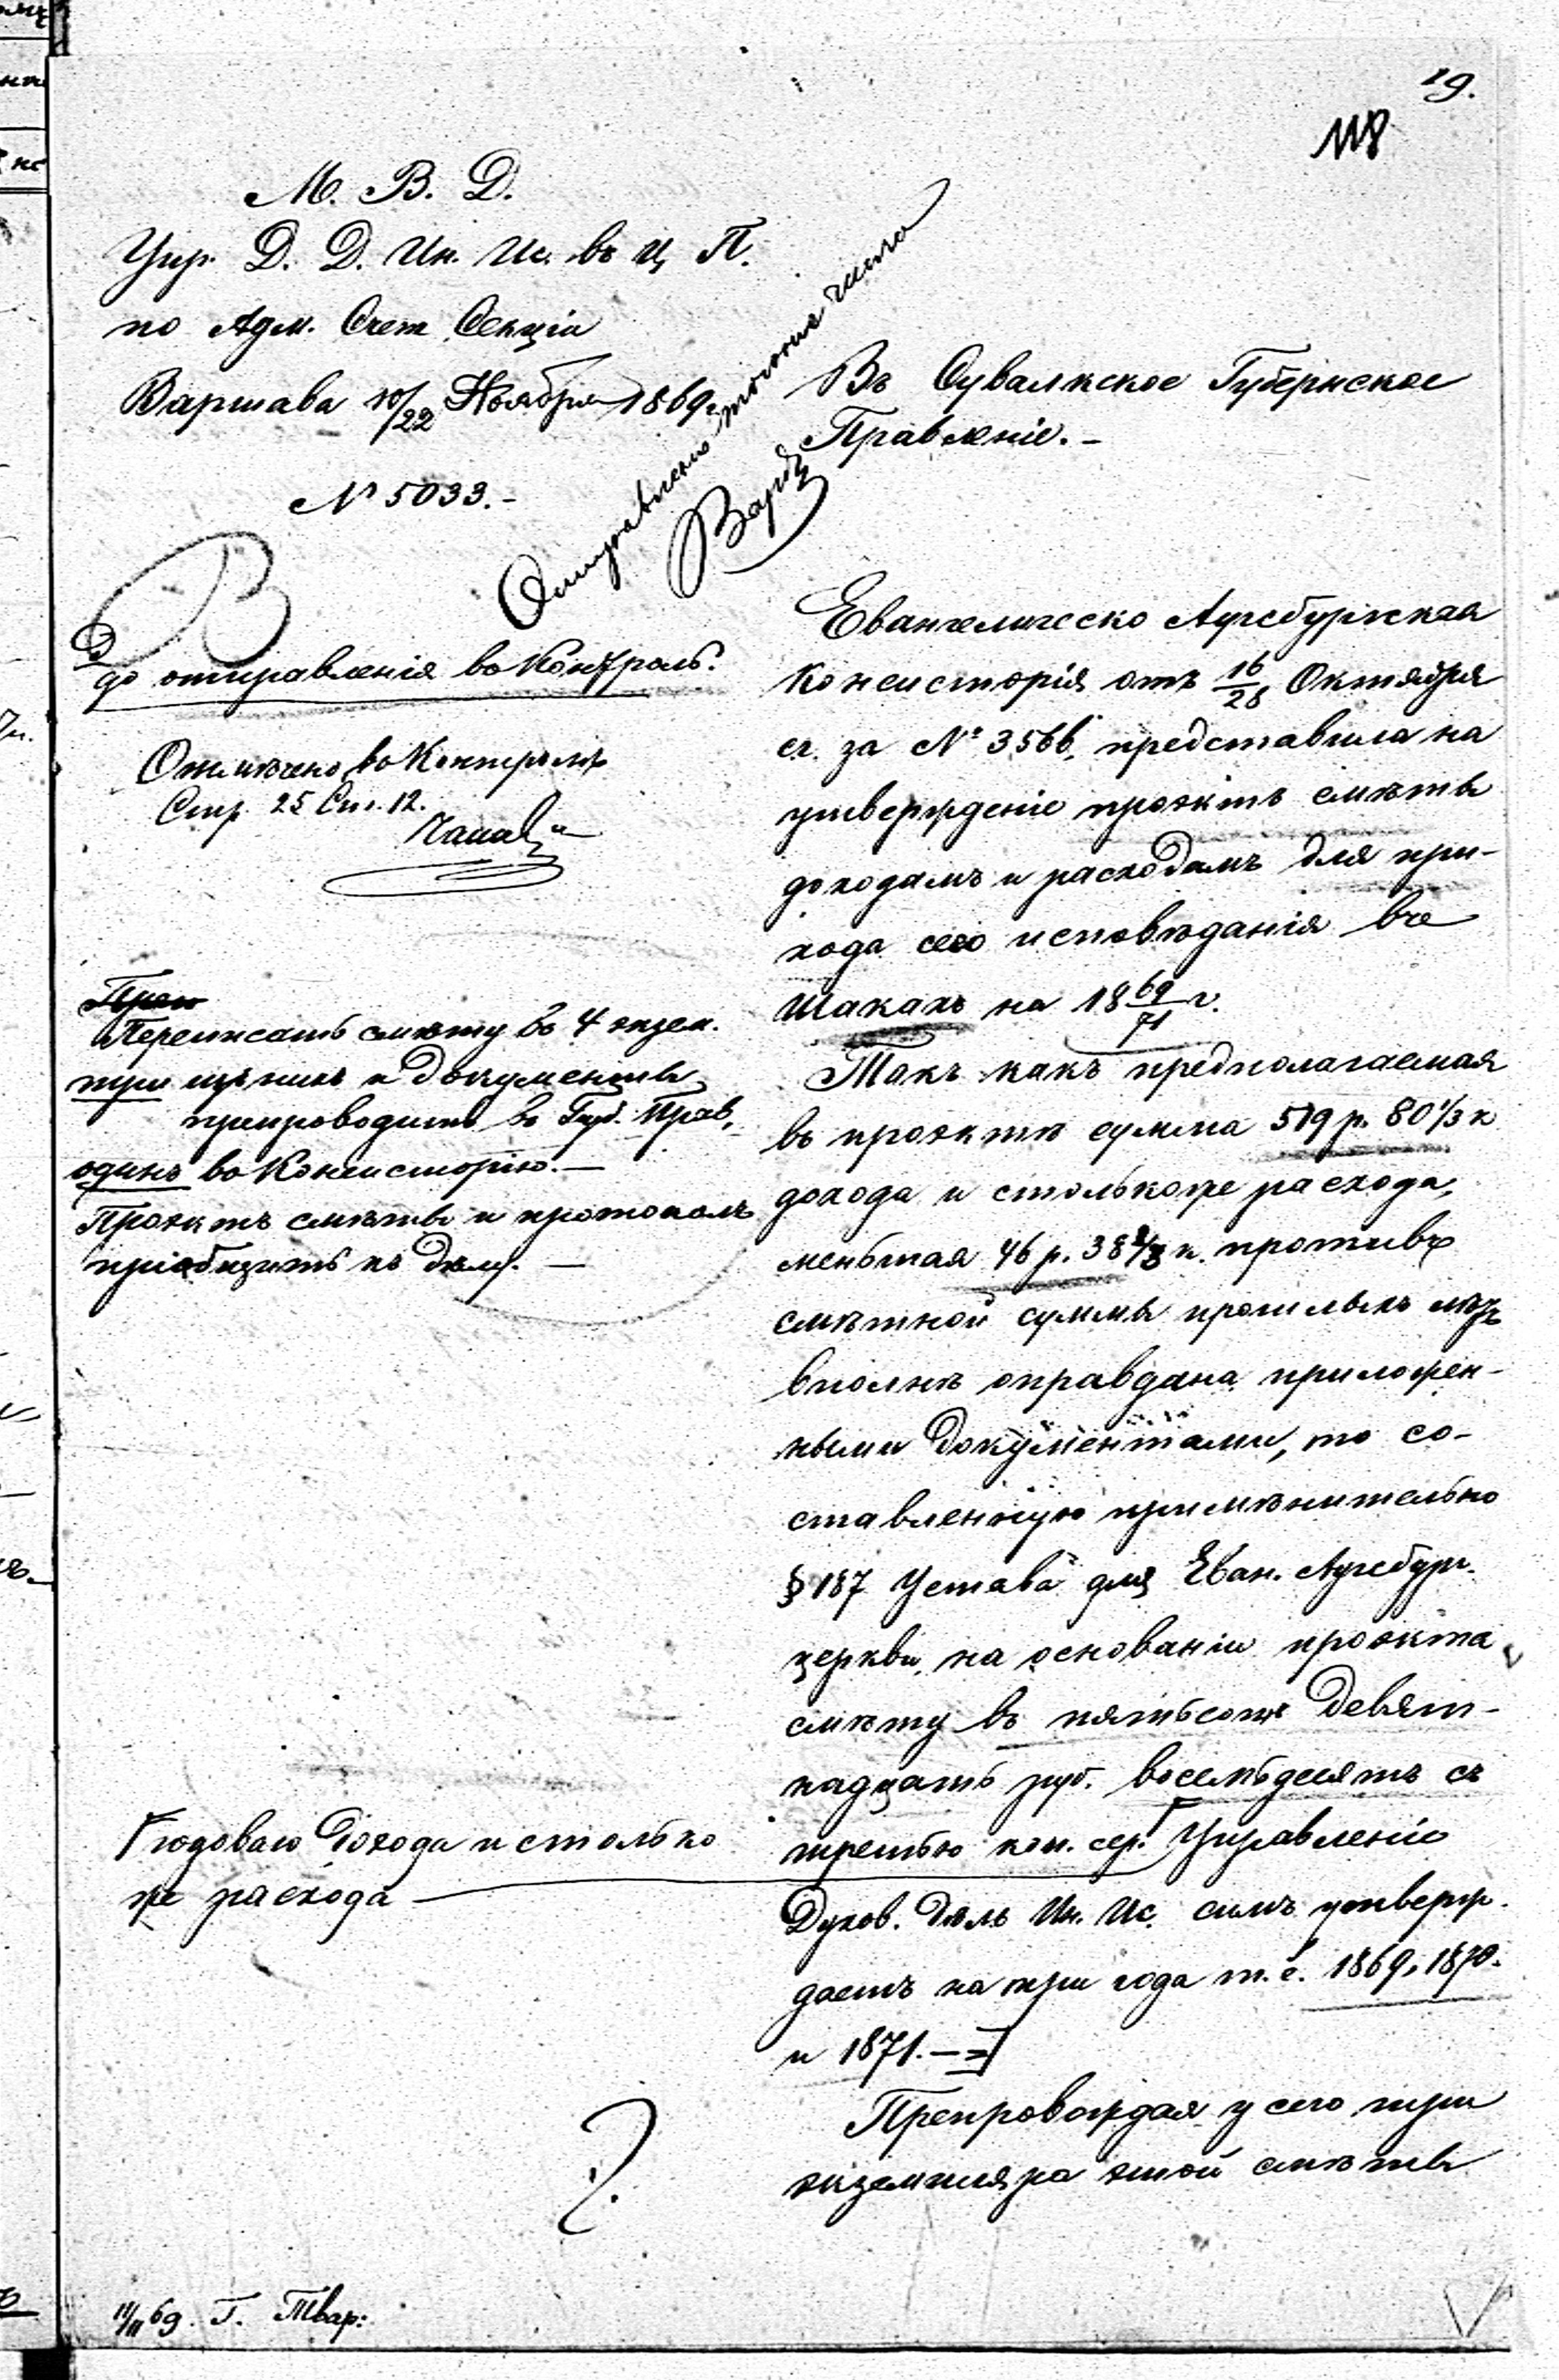 19.
118
М. В. Д.
Упр. Д. Д. Ин. Ис. въ Ц. П.
по Адм. Счет. Секціи
Варшава 10/22 Ноября 1869 г.
№ 5033.-
Отправлено того же числа
Въ Сувалкское Губернское
Правленіе.-
До отправленія въ Контроль.
Отмѣчено въ Контролѣ
Стр. 25 Ст. 12.
Переписать смѣту въ 4 экзем.
три изъ нихъ и документы
препроводить въ Губ. Прав.,
одинъ въ Консисторію.—
Проэктъ смѣты и протоколъ
пріобщить къ дѣлу.—
Евангелическо Аугсбургская
Консисторія отъ 16/28 Октября
с.г. за № 3566, представила на
утвержденіе проэктъ смѣты
доходамъ и расходамъ для при-
хода сего исповѣданія въ
Шакахъ на 18 69/71 г.
Такъ какъ предполагаемая
въ проэктѣ сумма 519 р. 80 1/3 к
дохода и столькоже расхода,
меньшая 46 р. 38 2/3 к. противъ
смѣтной суммы прошлыхъ лѣтъ
вполнѣ оправдана приложен-
ными документами, то со-
ставленную примѣнительно
§ 187 Устава для Еван. Аугсбург.
церкви, на основаніи проэкта
смѣту въ пятьсотъ девят-
надцать руб. восемьдесятъ съ
третью коп. сер. Управленіе
Духов. Дѣлъ Ин. Ис. симъ утверж-
даетъ на три года т.е. 1869, 1870.
и 1871.—
годоваго дохода и столько
же расхода
Препровождая у сего три
экземпляра этой смѣты
?
11/11 69. Г. Твар: